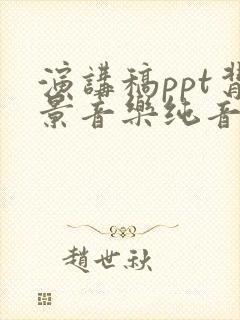 演講稿ppt背
景音樂纯音
趙世秋